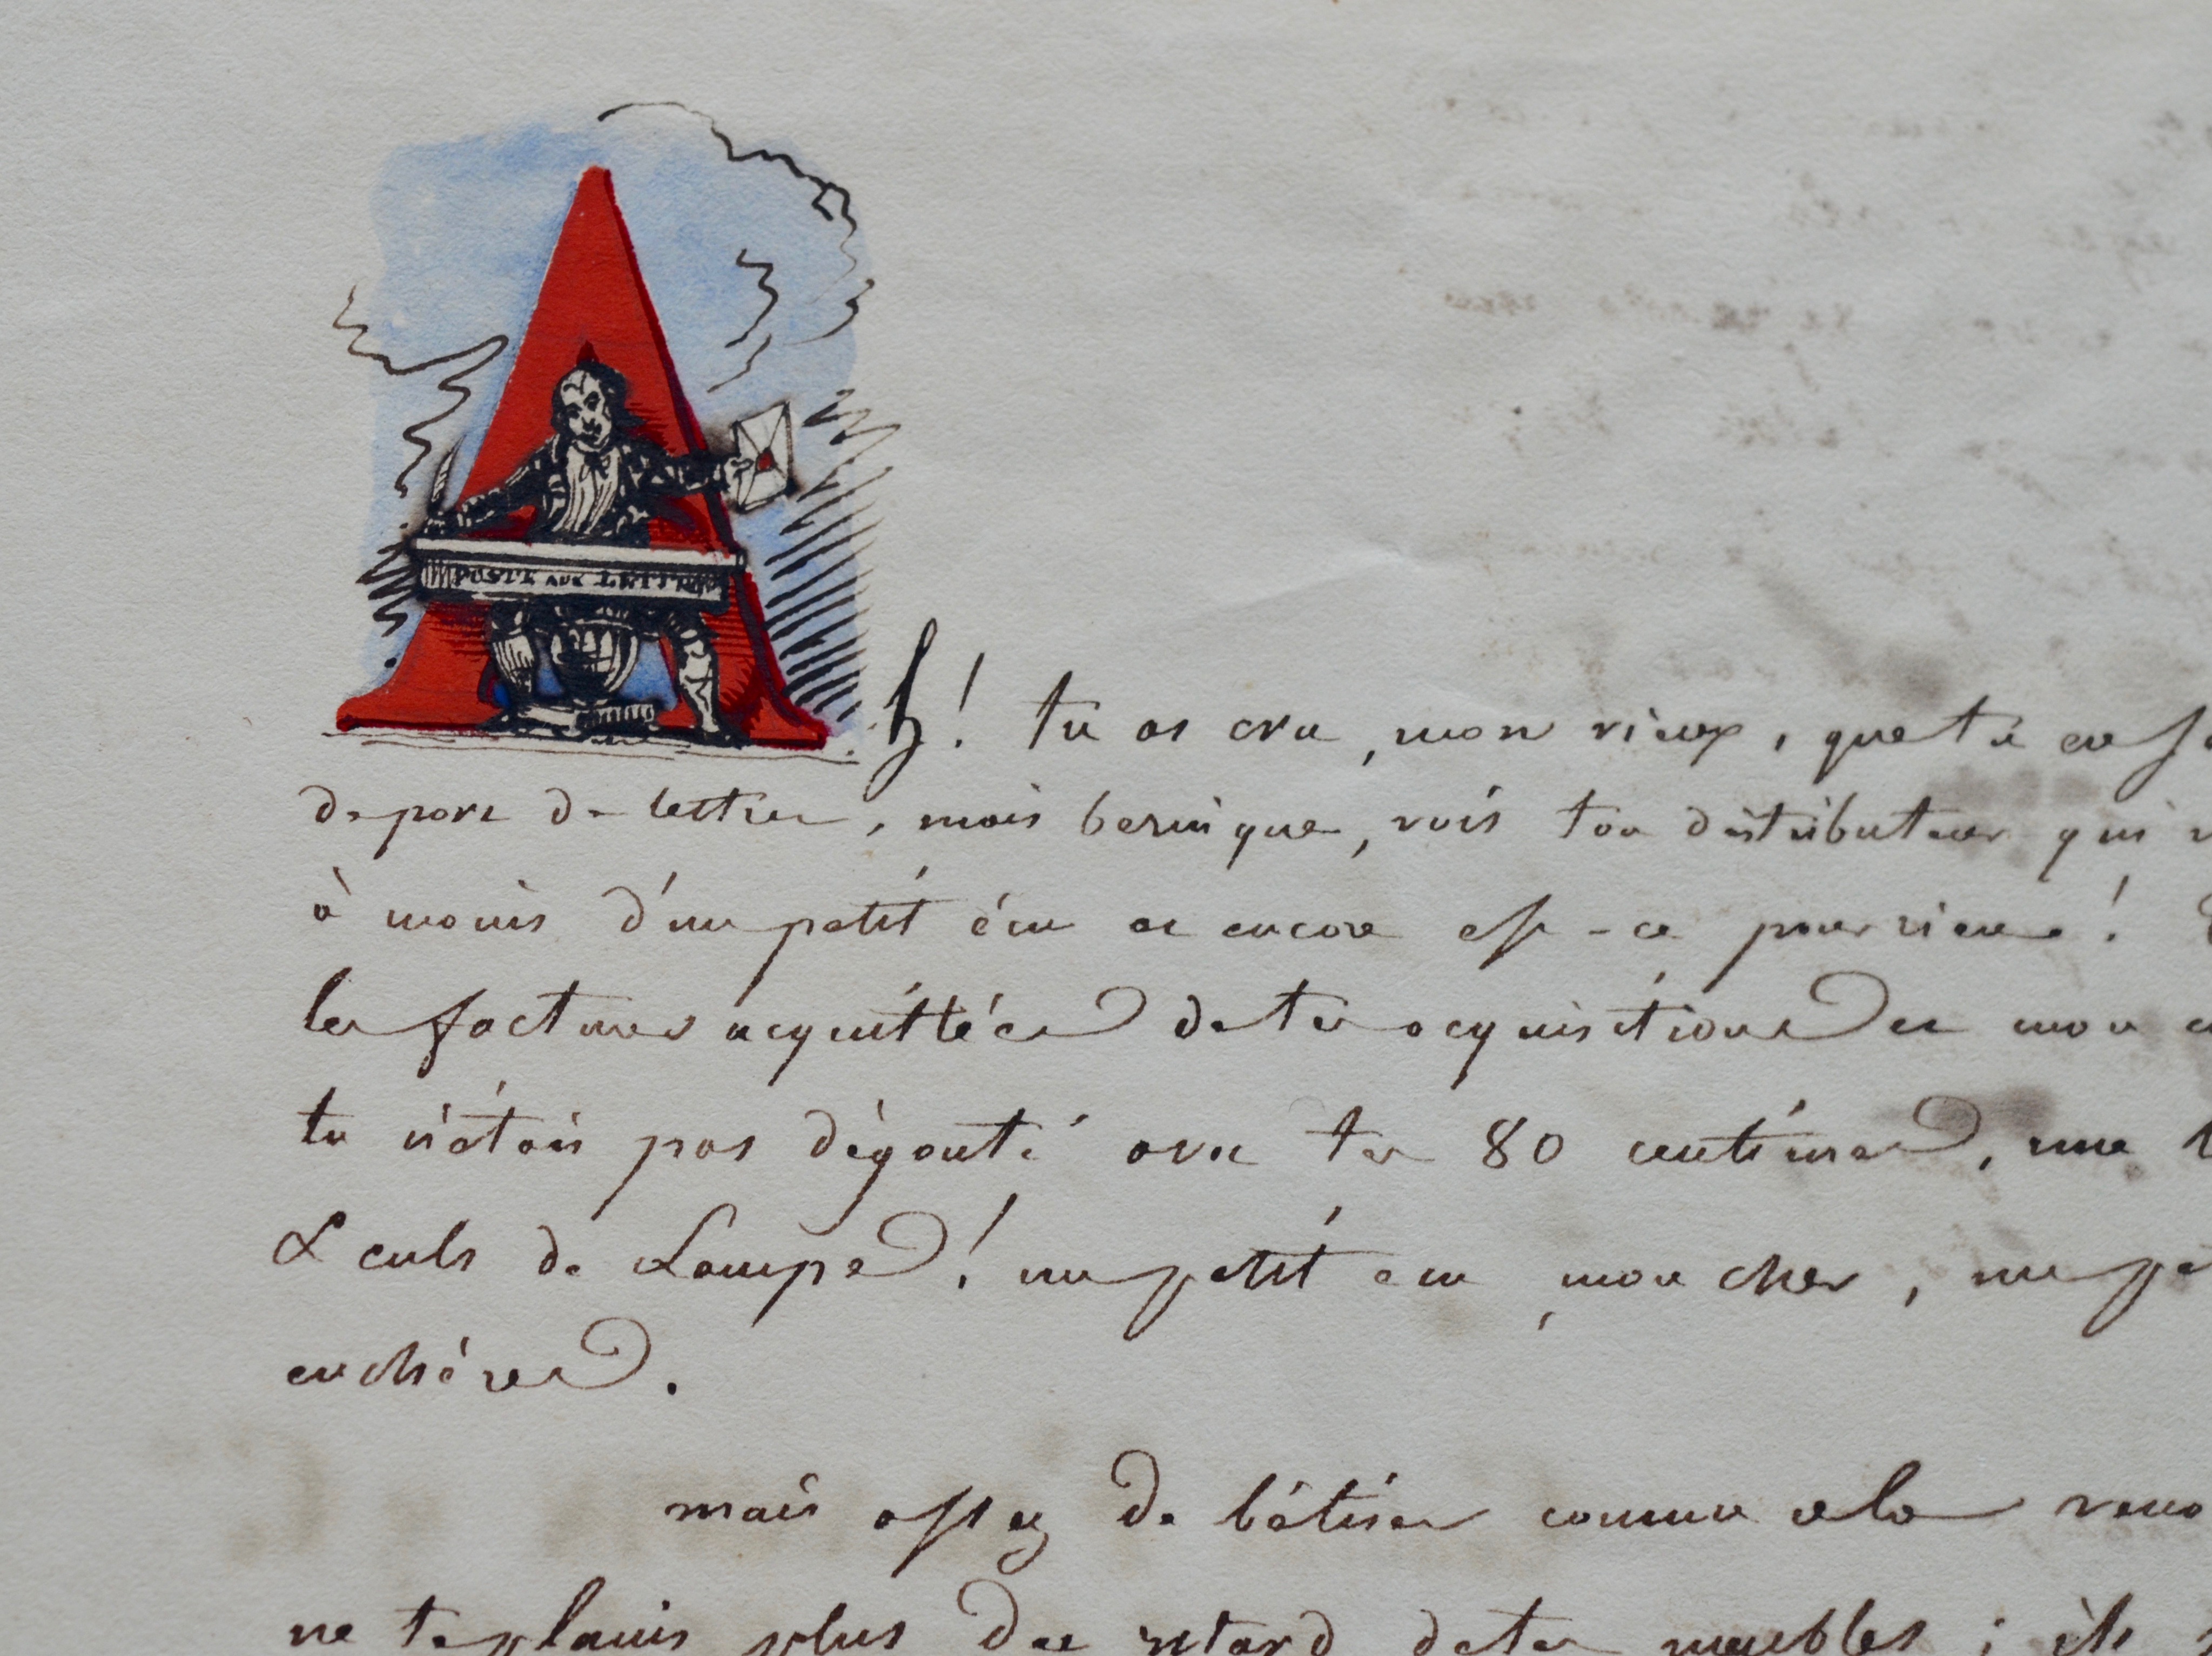 POSTE AUX LETTRES
Ah! tu as cru, mon vieux, que tu en
de port de lettres, mais bernique, vois ton distributeur qui
à moins d'un petit écu et encore est-ce pour rien! 
les factures acquittées de tes acquisitions et mon
tu n'étais pas dégouté avec tes 80 centimes, une
& culs de Lampes! un petit écu, mon cher, un
enchères.
mais assez de bêtises comme cela
ne te plains plus du retard de tes meubles; ils